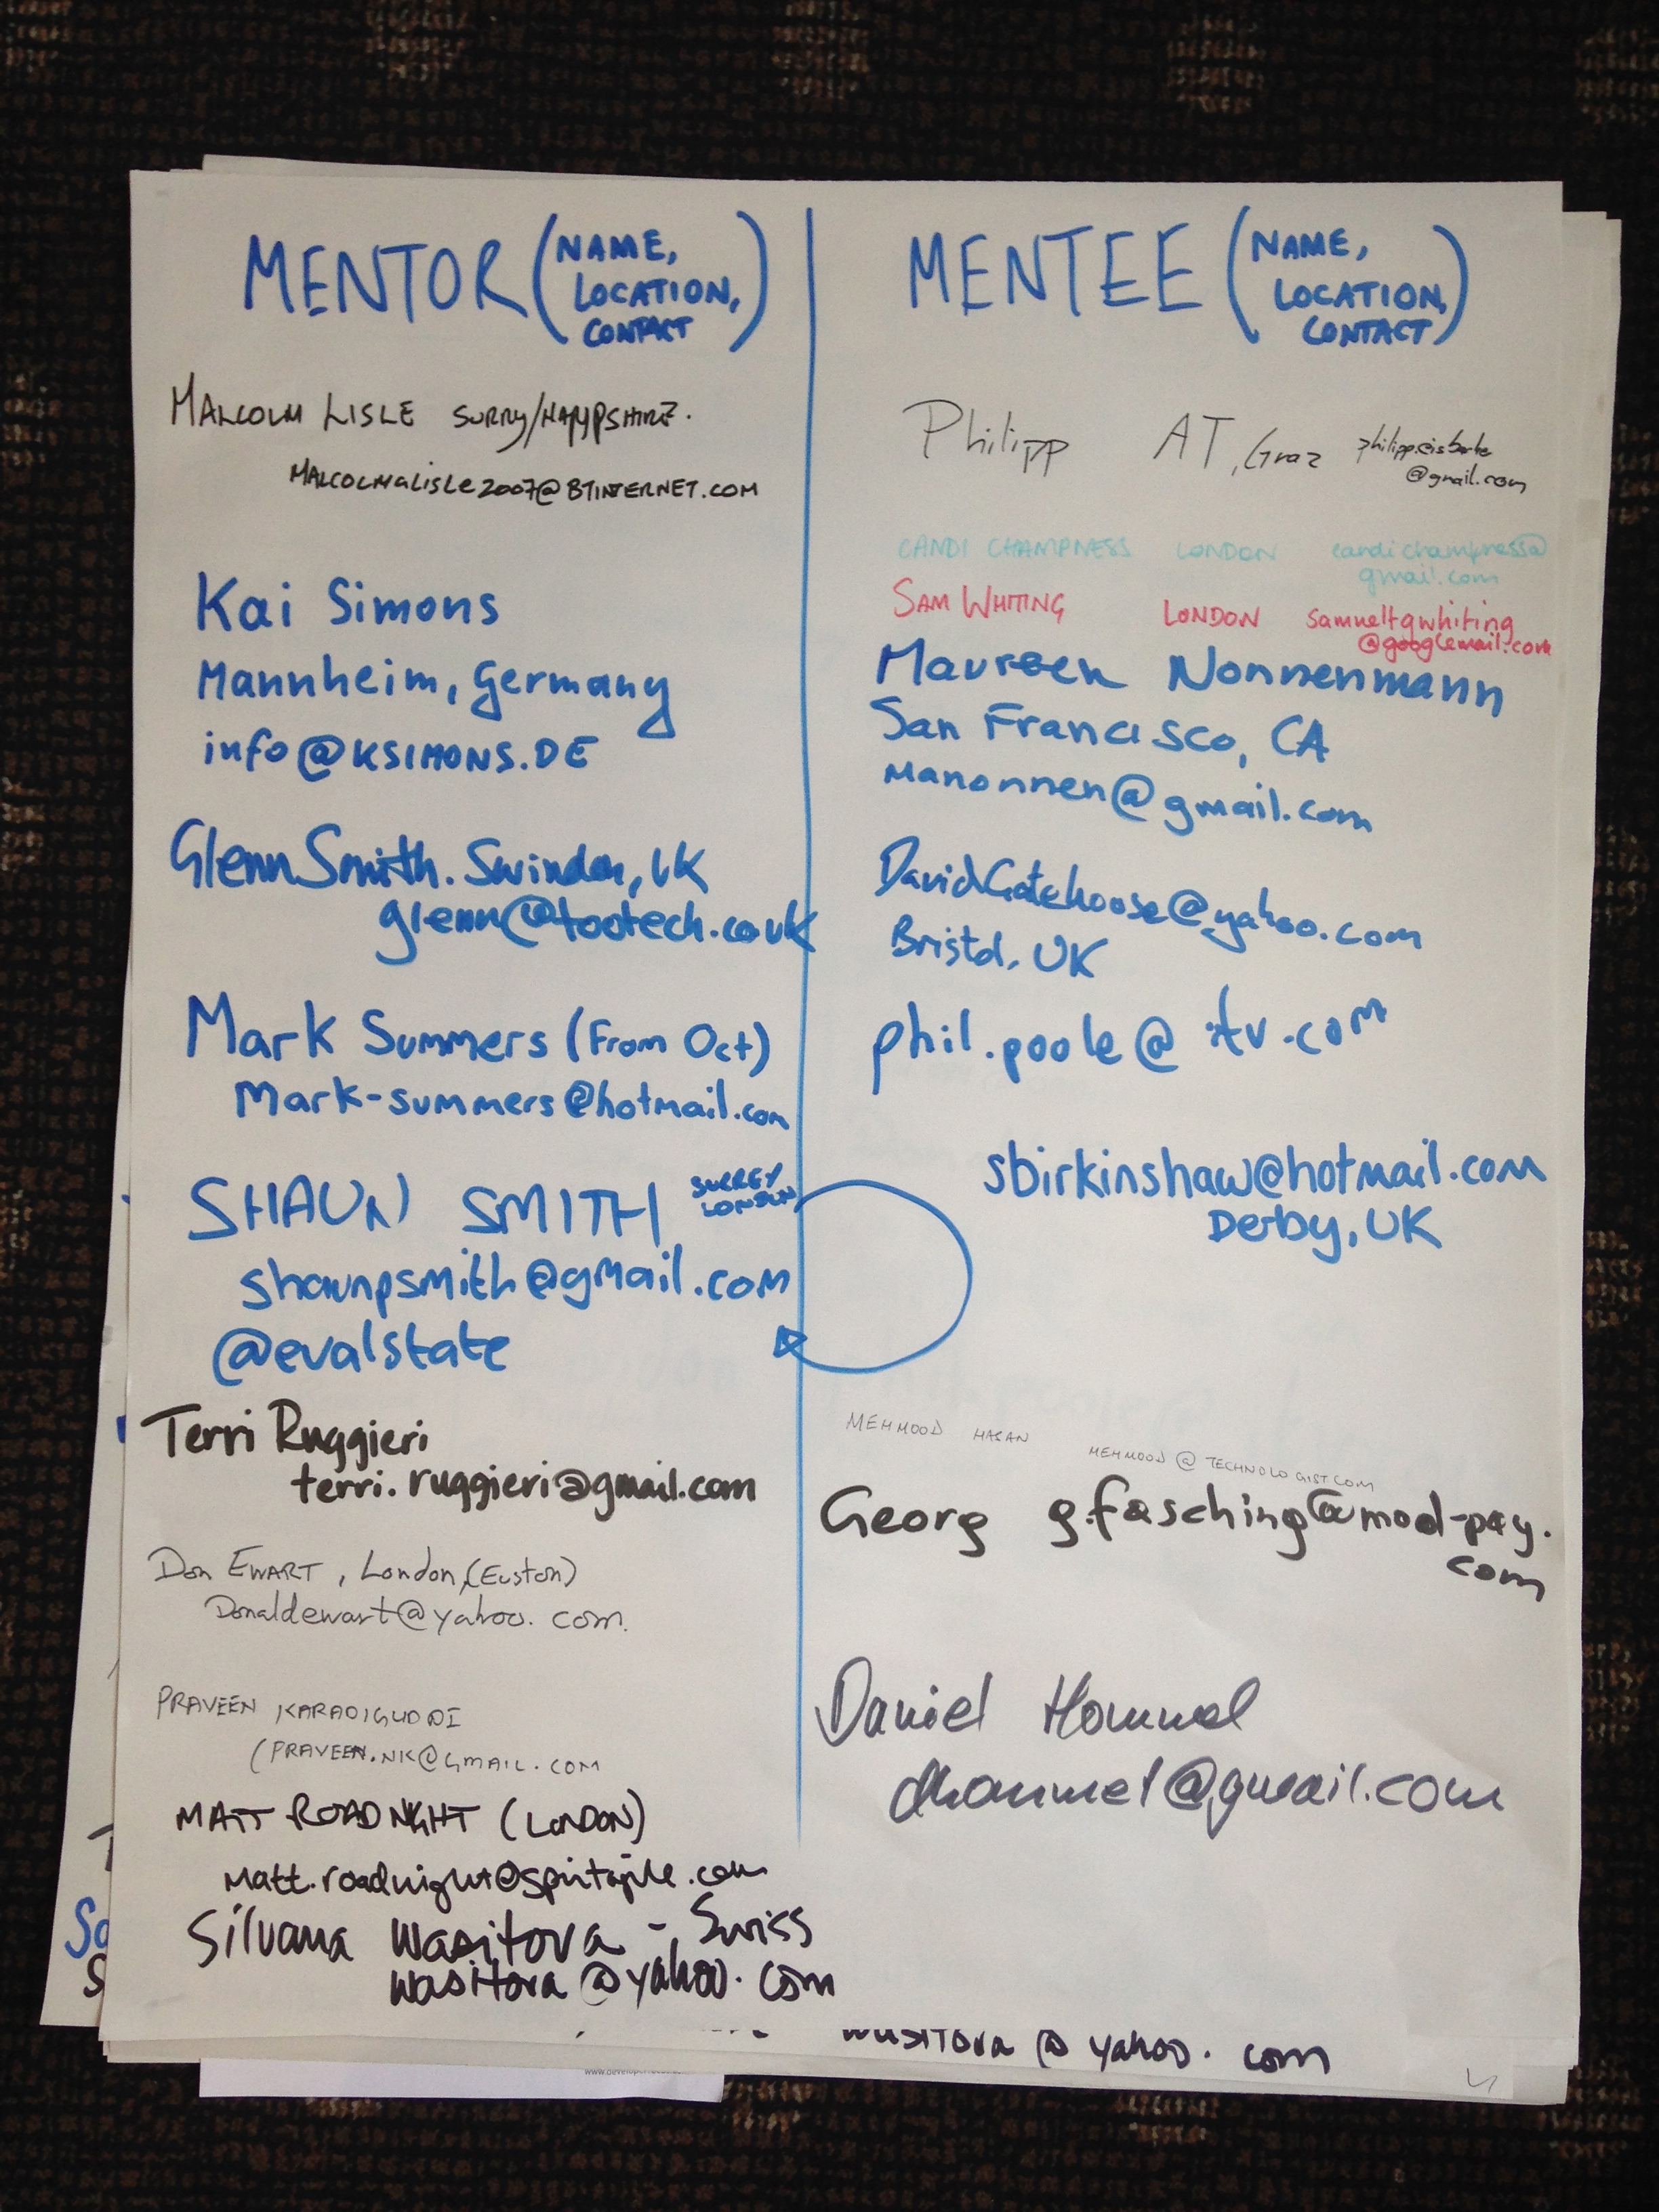 MENTOR (NAME,
LOCATION,
CONTACT)
MALCOLM LISLE SURRY/HAMPSHIRE.
MALCOLMALISLE2007@BTINTERNET.COM
Kai Simons
Mannheim, Germany
info@KSIMONS.DE
Glenn Smith. Swindon, UK
glenn@tootech.co.uk
Mark Summers (From Oct)
Mark-summers@hotmail.com
SHAUN SMITH SURREY
LONDON
shaunpsmith@gmail.com
@evalstate
Terri Ruggieri
terri.ruggieri@gmail.com
Don EWART, London, (Euston)
Donaldewart@yahoo.com.
PRAVEEN KARADIGUDDI
(PRAVEEN.NK@GMAIL.COM
MATT ROADNGHT (LONDON)
Matt.roadnight@spiritagile.com
Silvana Wasitova - Swiss
wasitova@yahoo.com
MENTEE (NAME,
LOCATION,
CONTACT)
Philipp AT, Graz
@gmail.com
CANDI CHAMPNESS LONDON candichampness@
gmail.com
SAM WHITING LONDON samueltgwhiting
@googlemail.com
Maureen Nonnenmann
San Francisco, CA
manonnen@gmail.com
DavidGatehoose@yahoo.com
Bristol, UK
phil.poole@itv.com
sbirkinshaw@hotmail.com
Derby, UK
MEHMOOD HASAN MEHMOOD@TECHNOLOGIST.COM
Georg g.fasching@mod-pay.
com
Daniel Hommel
dhommel@gmail.com
wasitova@yahoo.com